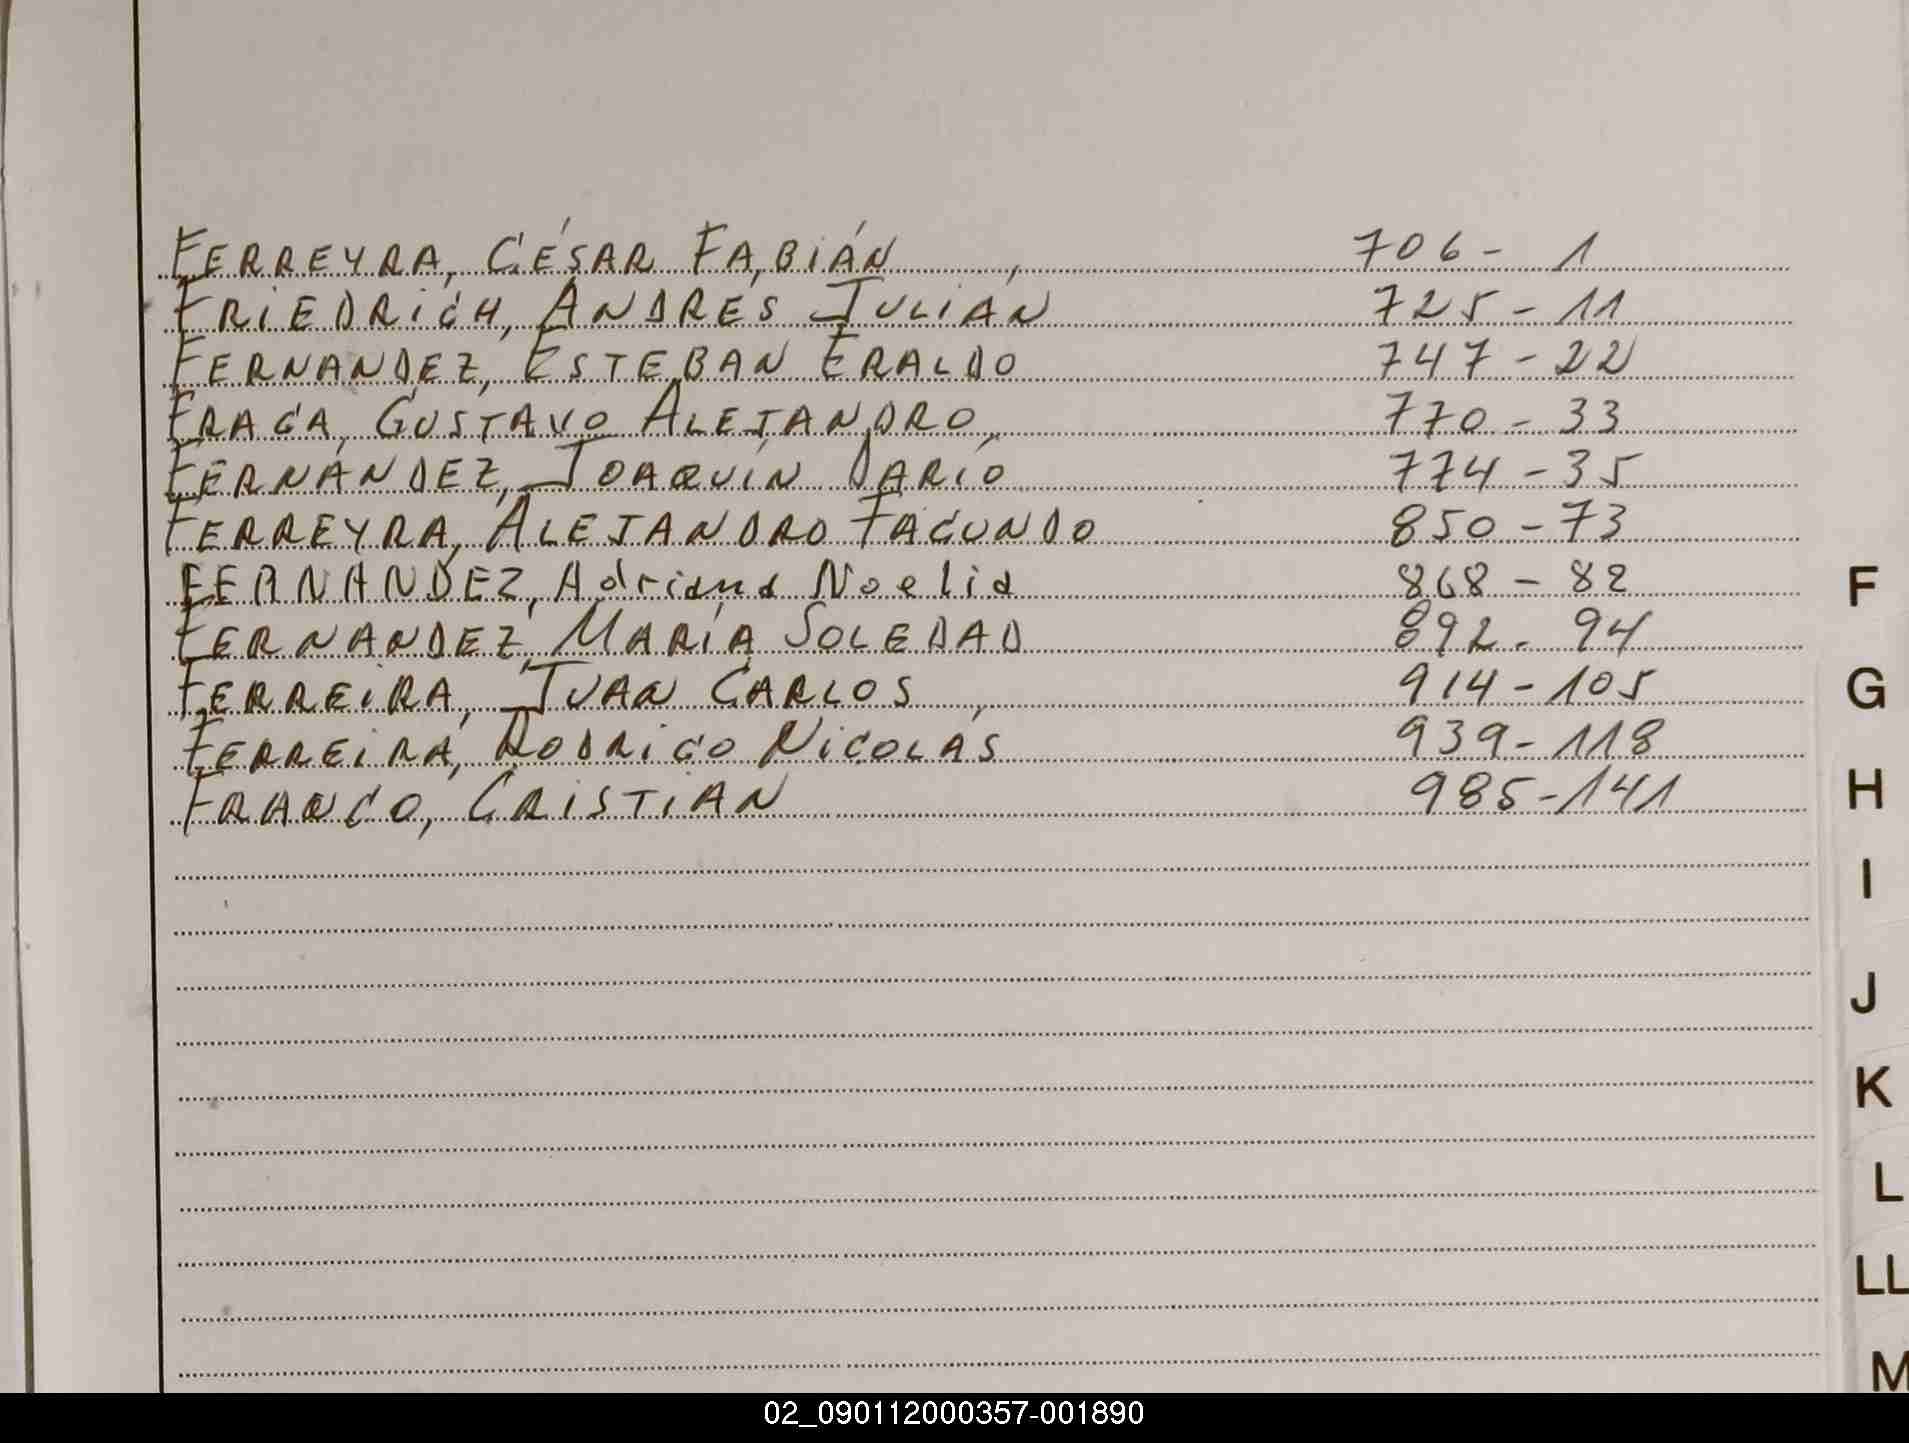 FERREYRA, CÉSAR FABIÁN 706 - 1
FRIEDRICH, ANDRES JULIÁN 725 - 11
FERNANDEZ, ESTEBAN ERALDO 747 - 22
FRAGA, GUSTAVO ALEJANDRO 770 - 33
FERNÁNDEZ, JOAQUÍN DARÍO 774 - 35
FERREYRA, ALEJANDRO FACUNDO 850 - 73
FERNANDEZ, Adriana Noelia 868 - 82
FERNANDEZ, MARÍA SOLEDAD 892 - 94
FERREIRA, JUAN CARLOS 914 - 105
FERREIRA, RODRIGO NICOLÁS 939 - 118
FRANCO, CRISTIAN 985 - 141
F
G
H
I
J
K
L
LL
M
02_090112000357-001890